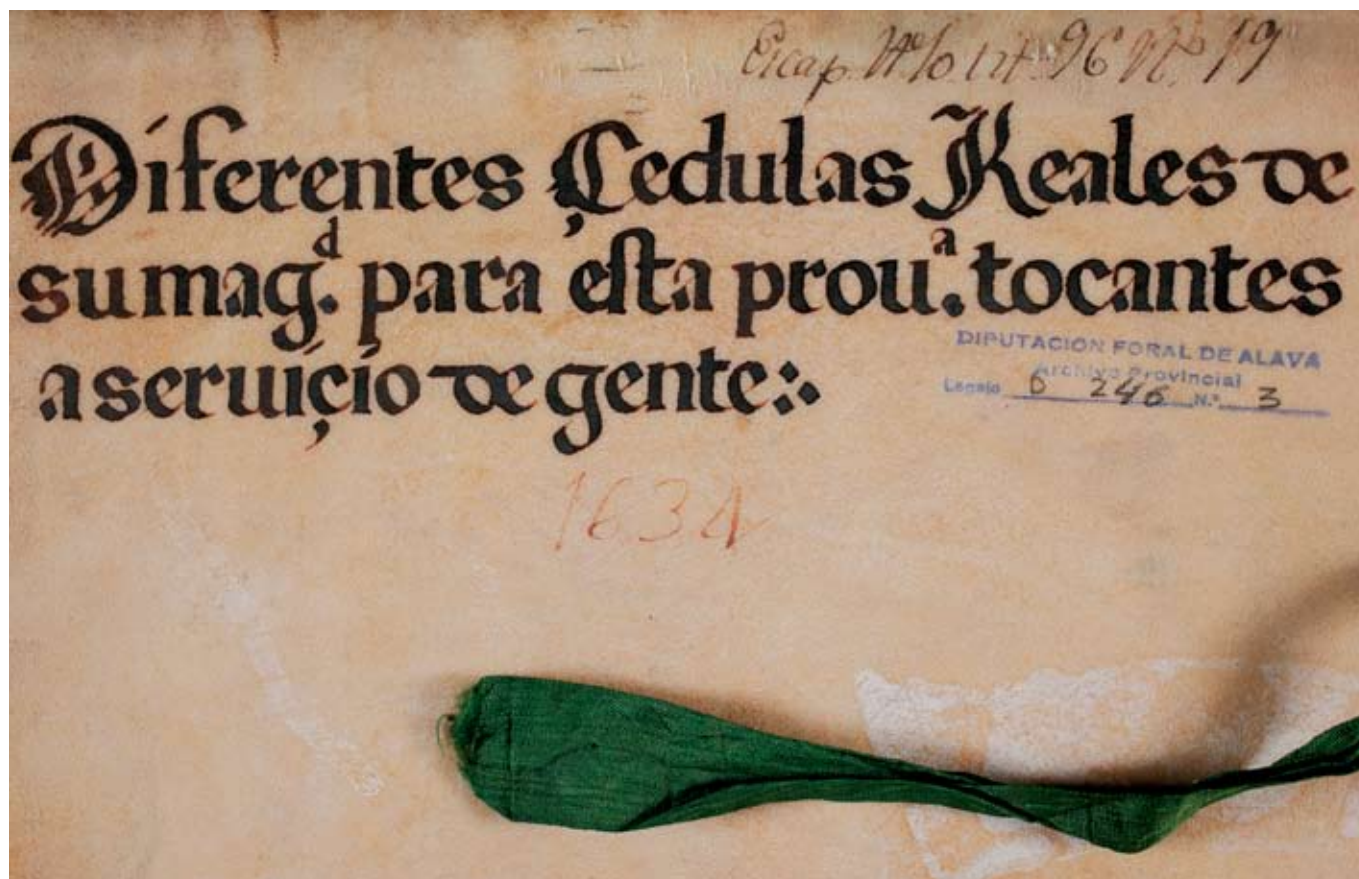 Nº 19
Diferentes Çedulas Reales de
su mag.d para esta prou.a tocantes
a seruiçio de gente
DIPUTACION FORAL DE ALAVA
Archivo Provincial
Legajo D 246 N.º 3
1634